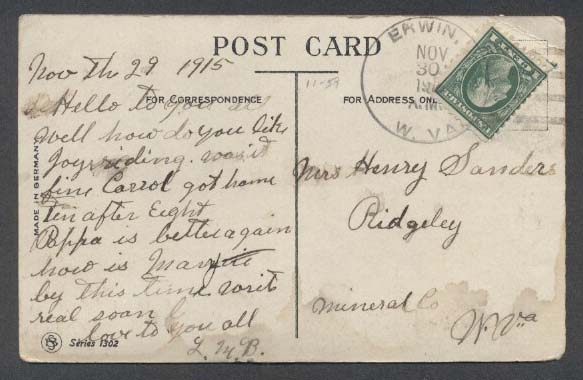 POST CARD
ERWIN,
NOV
30
W. VA.
Nov Th 29 1915
11-59
FOR CORRESPONDENCE
FOR ADDRESS ONL
Hello to you all
Well how do you like
Joyriding. was it
fine Carrol got home
Ten after Eight
Poppa is better again
how is
by this time writ
real soon
love to you all
L. M. B.
MADE IN GERMANY
Series 1302
Mrs Henry Sanders
Ridgeley
Mineral Co
W. Va